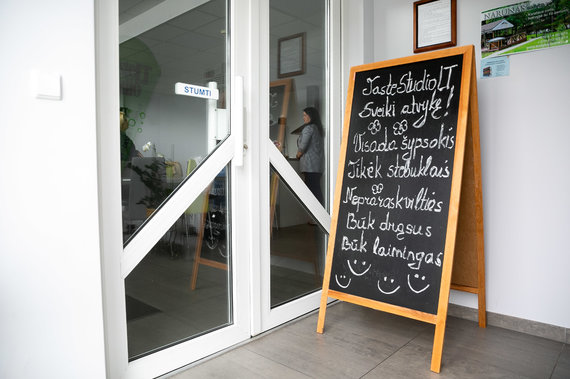 STUMTI
TasteStudioLT
Sveiki atvykę!
Visada šypsokis
Tikėk stebuklais
Neprarask vilties
Būk drąsus
Būk laimingas